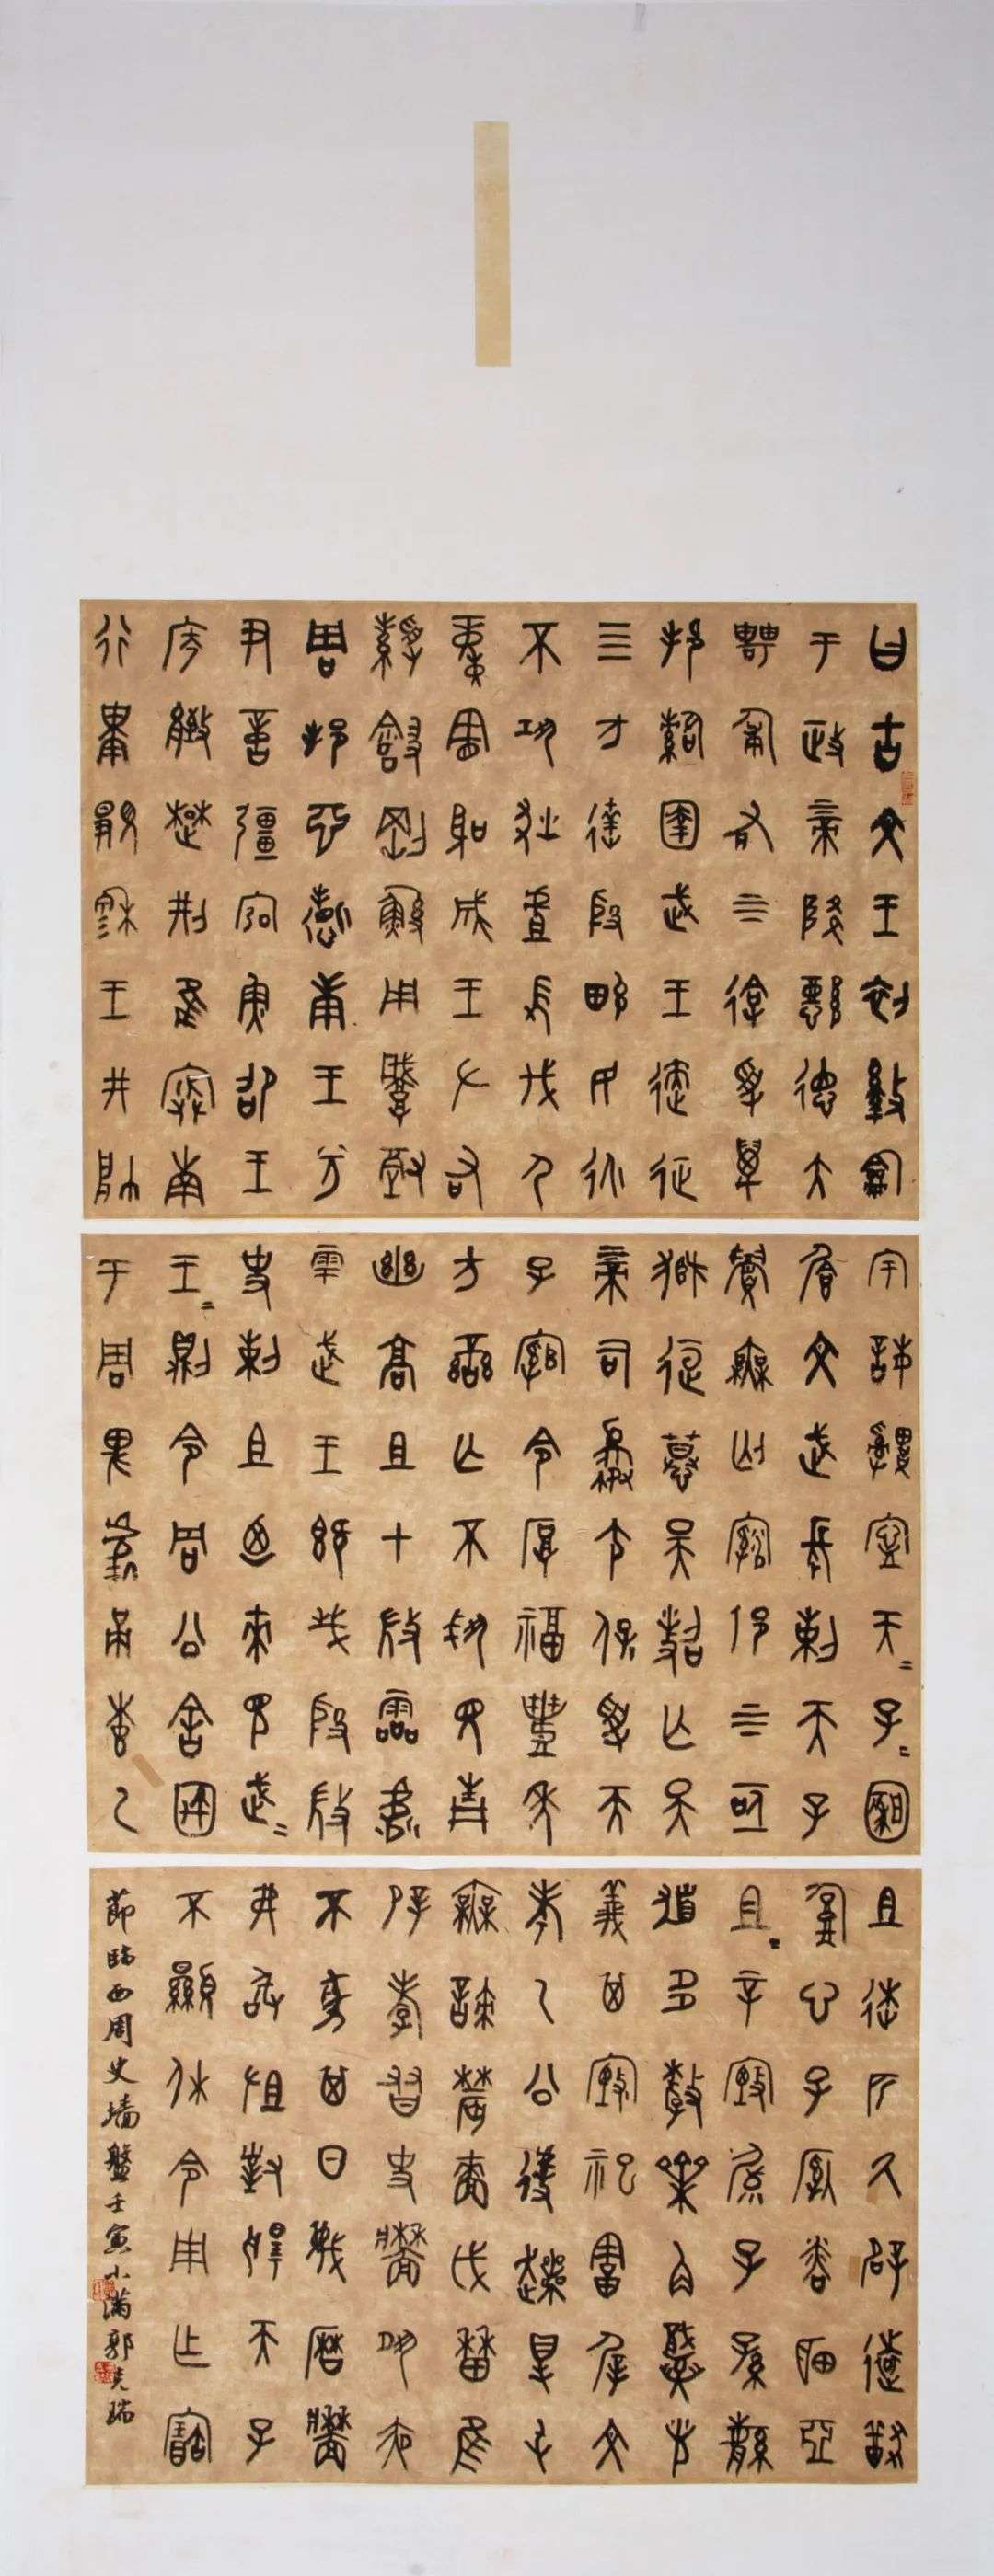 曰古文王初盭龢
于政帝降懿德大
甹匍有上下迨受萬
邦訊圉武王遹征
四方達殷畯民永
不巩狄虘長伐尸
憲聖成王左右
綬會剛鯀用肇徹
周邦淵哲康王兮
尹億疆弘魯昭王
廣批楚荊隹寏南
行祗顯穆王井帥
宇誨申寧天=子=恪
纘文武長剌天子
眉無匄虔祁上下亟
桓慕昊照亡斁
上帝司夒尢保受天
子綰令厚福豐年
方蠻亡不踝見青
幽高且才微靈處
雩武王既戈殷微
史剌且迺來見武=
王=則令周公舍宇
于周卑處甬惠乙
且逨匹厥辟遠猷
腹心子納粦明亞
且=辛毓子孫繁
祓多釐齊角熾光
義其禋祀胡遲文
考乙公遽爽得屯
無諫農嗇戉曆隹
辟孝友史墻夙夜
不墜其日蔑曆墻
弗敢沮對揚天子
不顯休令用乍寶
節臨西周史墙盤壬寅小滿郭瑞